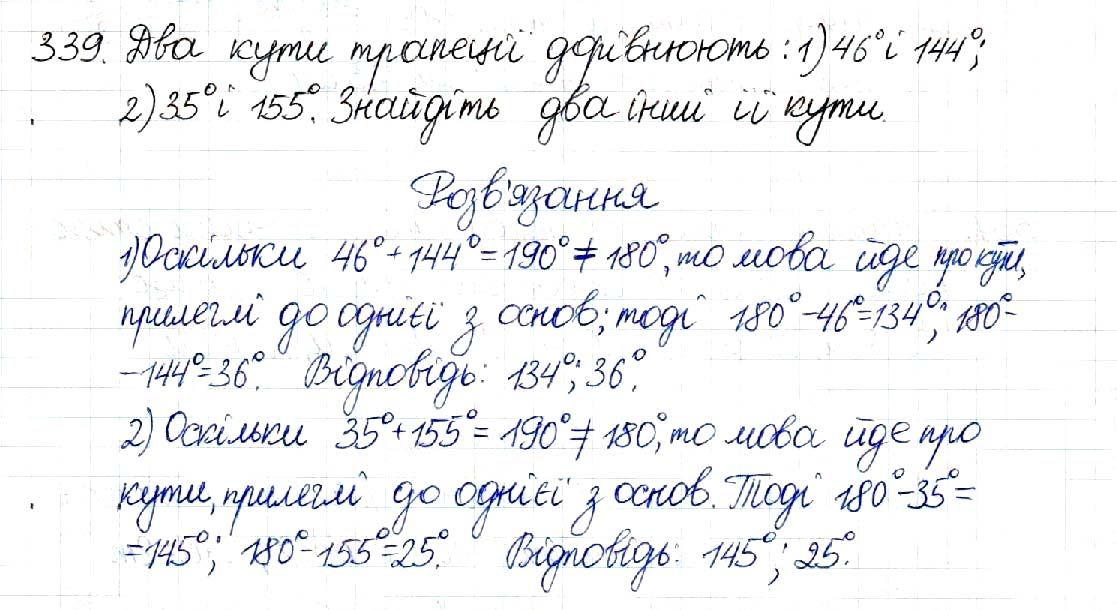 339. Два кути трапеції дорівнюють: 1) 46° і 144°;
2) 35° і 155°. Знайдіть два інші її кути.
Розв'язання
1) Оскільки 46° + 144° = 190° ≠ 180°, то мова йде про кути,
прилеглі до однієї з основ; тоді 180° - 46° = 134°; 180° -
- 144° = 36°. Відповідь: 134°; 36°.
2) Оскільки 35° + 155° = 190° ≠ 180°, то мова йде про
кути, прилеглі до однієї з основ. Тоді 180° - 35° =
= 145°; 180° - 155° = 25°. Відповідь: 145°; 25°.